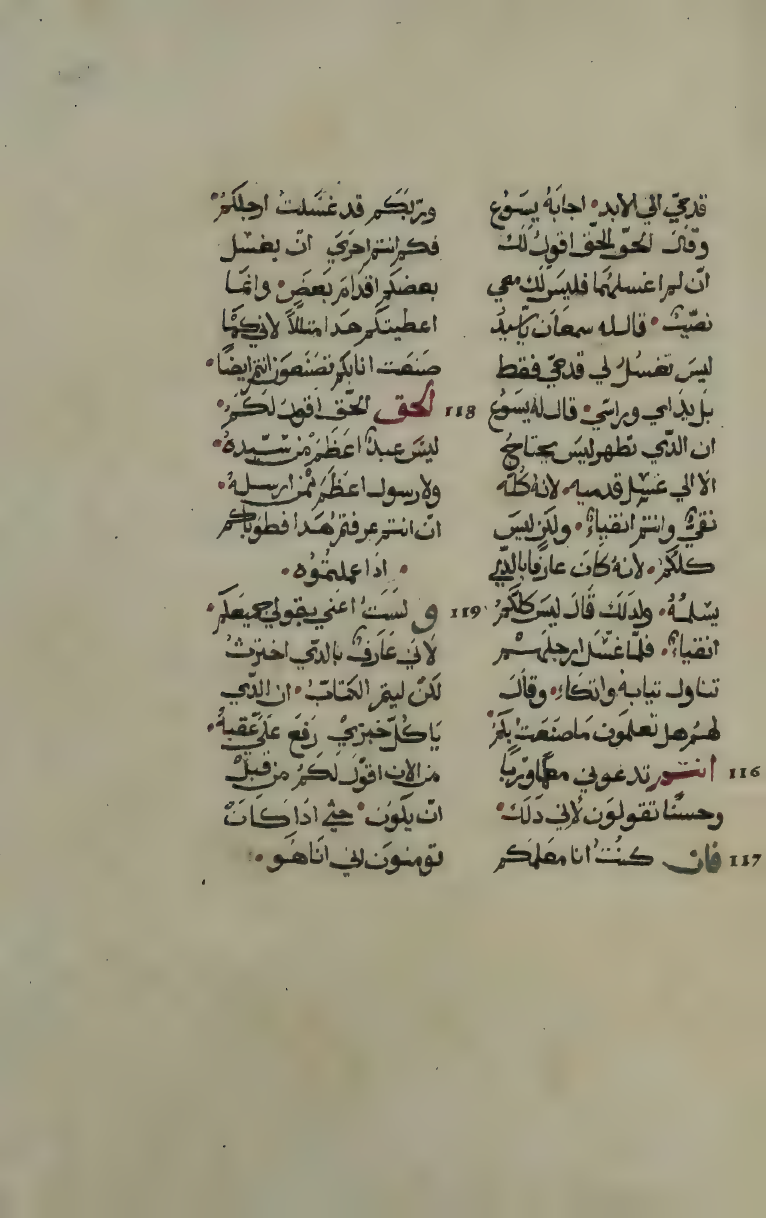 قدمي الي الابد• اجابه يسوع
وقال الحق الحق اقول لك
ان لم اغسلهما فليس لك معي
نصيب• قال له سمعان يا سيد
ليس تغسل لي قدمي فقط
بل يداي وراسي• قال له يسوع
ان الذي تطهر ليس يحتاج
الا الي غسل قدميه• لانه كله
نقي وانتم انقياء• ولكن ليس
كلكم• لانه كان عارفا بالذي
يسلمه• ولذلك قال ليس كلكم
انقياء• فلما غسل ارجلهم
تناول ثيابه واتكاء• وقال
لهم هل تعلمون ما صنعت بكم
116 انتم تدعوني معلما وربا
وحسنا تقولون لاني ذلك•
117 فان كنت انا معلمكم
وربكم قد غسلت ارجلكم•
فكم انتم احري ان يغسل
بعضكم اقدام بعض• وانما
اعطيتكم هدا مثالا لاني كما
صنعت انا بكم تصنعون انتم ايضا•
118 الحق الحق اقول لكم•
ليس عبد اعظم من سيده•
ولا رسول اعظم ممن ارسله•
ان انتم عرفتم هدا فطوباكم
• اذا عملتموه•
119 و لست اعني بقولي جميعكم•
لاني عارف بالذي اخترت
لكن ليتم الكتاب• ان الذي
ياكل خبزي رفع علي عقبه•
من الان اقول لكم من قبل
ان يكون• حتي اذا كان
تومنون اني انا هو•